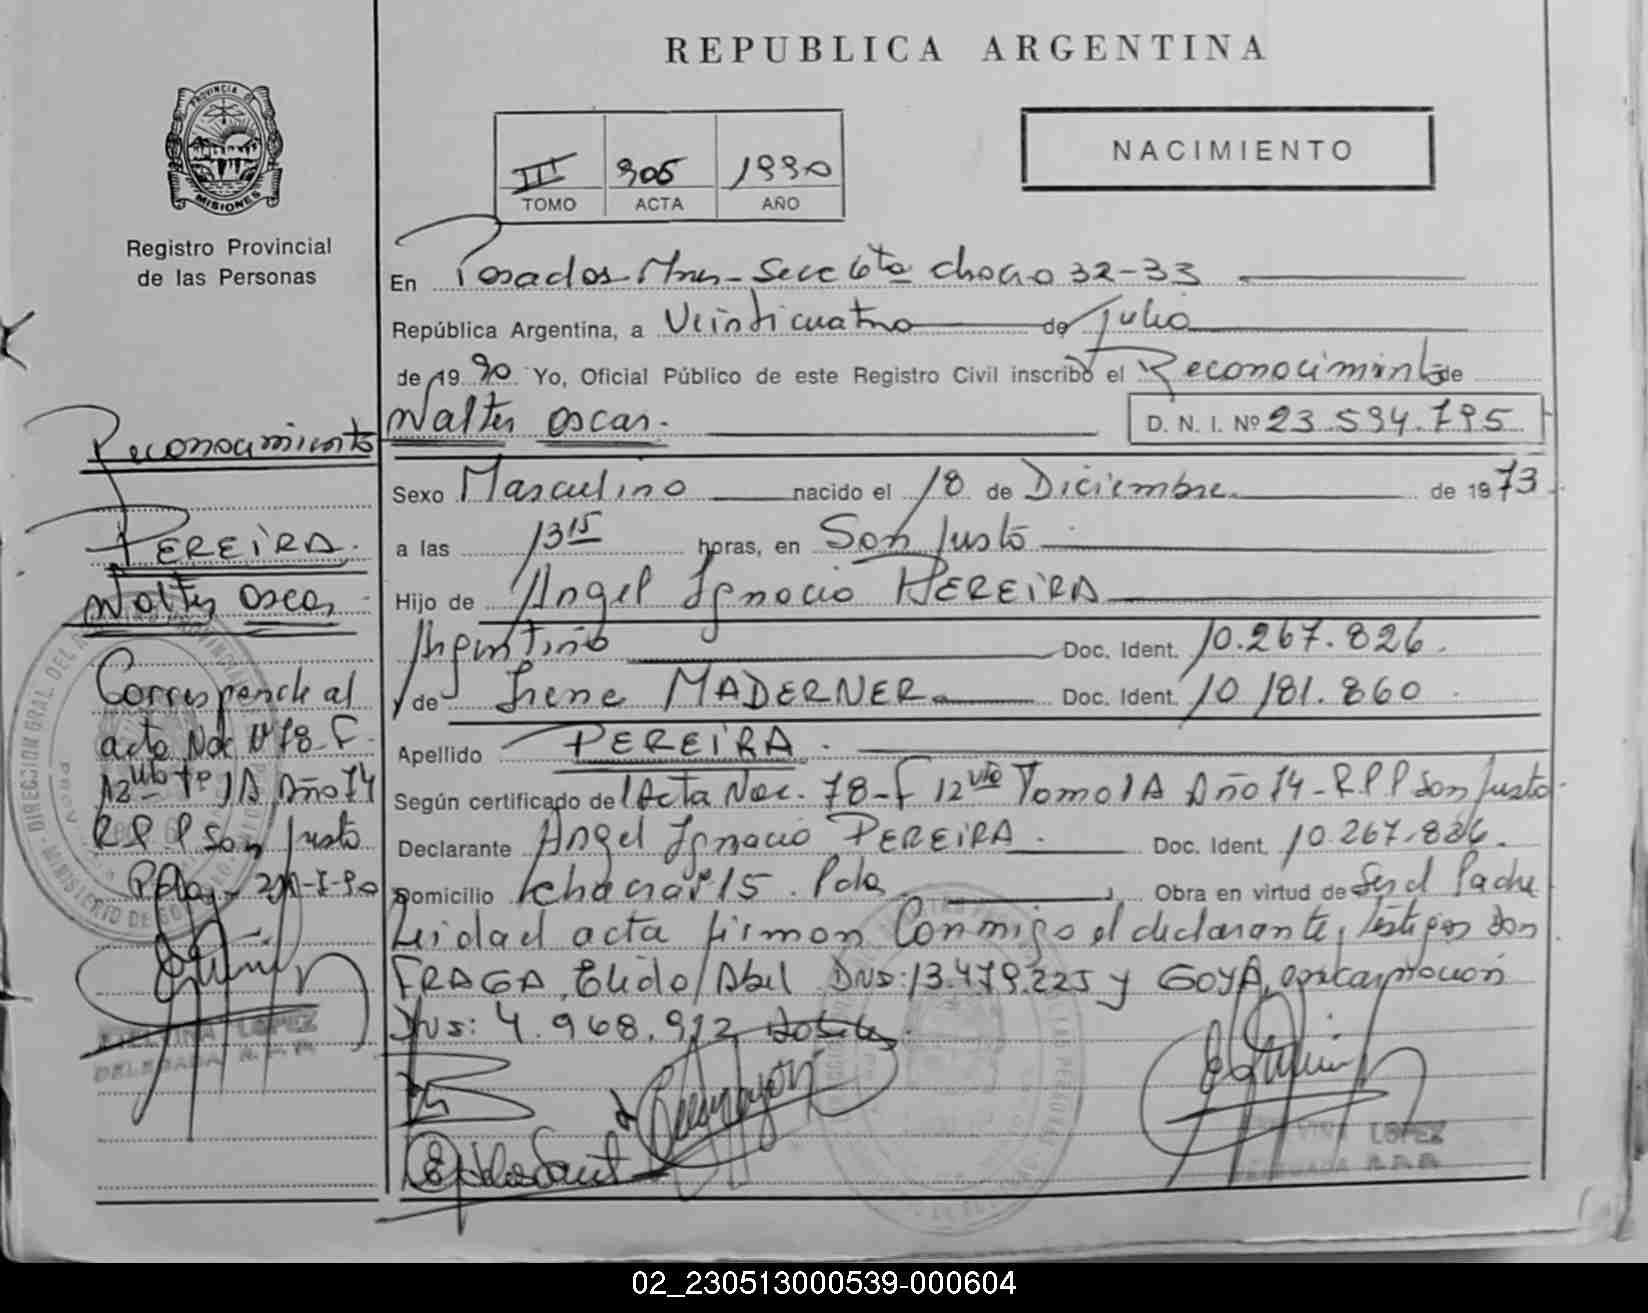 REPUBLICA ARGENTINA
PROVINCIA DE
MISIONES
Registro Provincial
de las Personas
III 305 1990
TOMO ACTA AÑO
NACIMIENTO
En Posadas Mnes - Secc 6ta chacra 32-33
República Argentina, a Veinticuatro de Julio
de 1990 Yo, Oficial Público de este Registro Civil inscribo el Reconocimiento de
Walter Oscar.
D. N. I. Nº 23.594.795
Sexo Masculino nacido el 18 de Diciembre de 1973
a las 13 15 horas, en San Justo
Hijo de Angel Ignacio PEREIRA
Argentino Doc. Ident. 10.267.826.
y de Irene MADERNER Doc. Ident. 10.181.860
Apellido PEREIRA.
Según certificado de Acta Nac. 78-F 12 Tomo 1A Año 74 - R.P.P San Justo.
Declarante Angel Ignacio PEREIRA. Doc. Ident. 10.267.826.
Domicilio chacra 15. Pdas Obra en virtud de Ser el Padre
Leida el acta firman conmigo el declarante, testigos Don
FRAGA, Elido Abel DNI: 13.479.225 y GOYA, encarnacion
DNI: 4.968.912
Reconocimiento
PEREIRA.
Walter Oscar
Corresponde al
acta Nac Nº 78-F.
12 Tº 1A Año 74
R P P San Justo
LOPEZ
DELEGADA
LOPEZ
DELEGADA
02_230513000539-000604